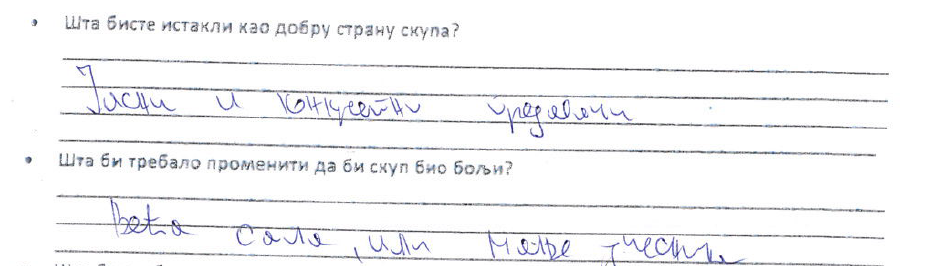 Шта бисте истакли као добру страну скупа?
Јасни и конкретни предавачи
Шта би требало променити да би скуп био бољи?
Већа сала, или мање учесника